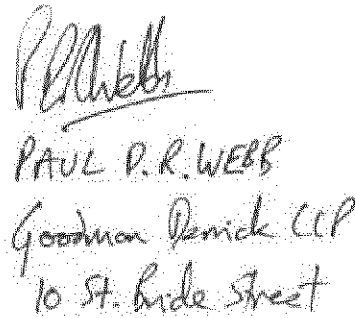 P D R Webb
PAUL D.R. WEBB
Goodman Derrick LLP
10 St. Bride Street